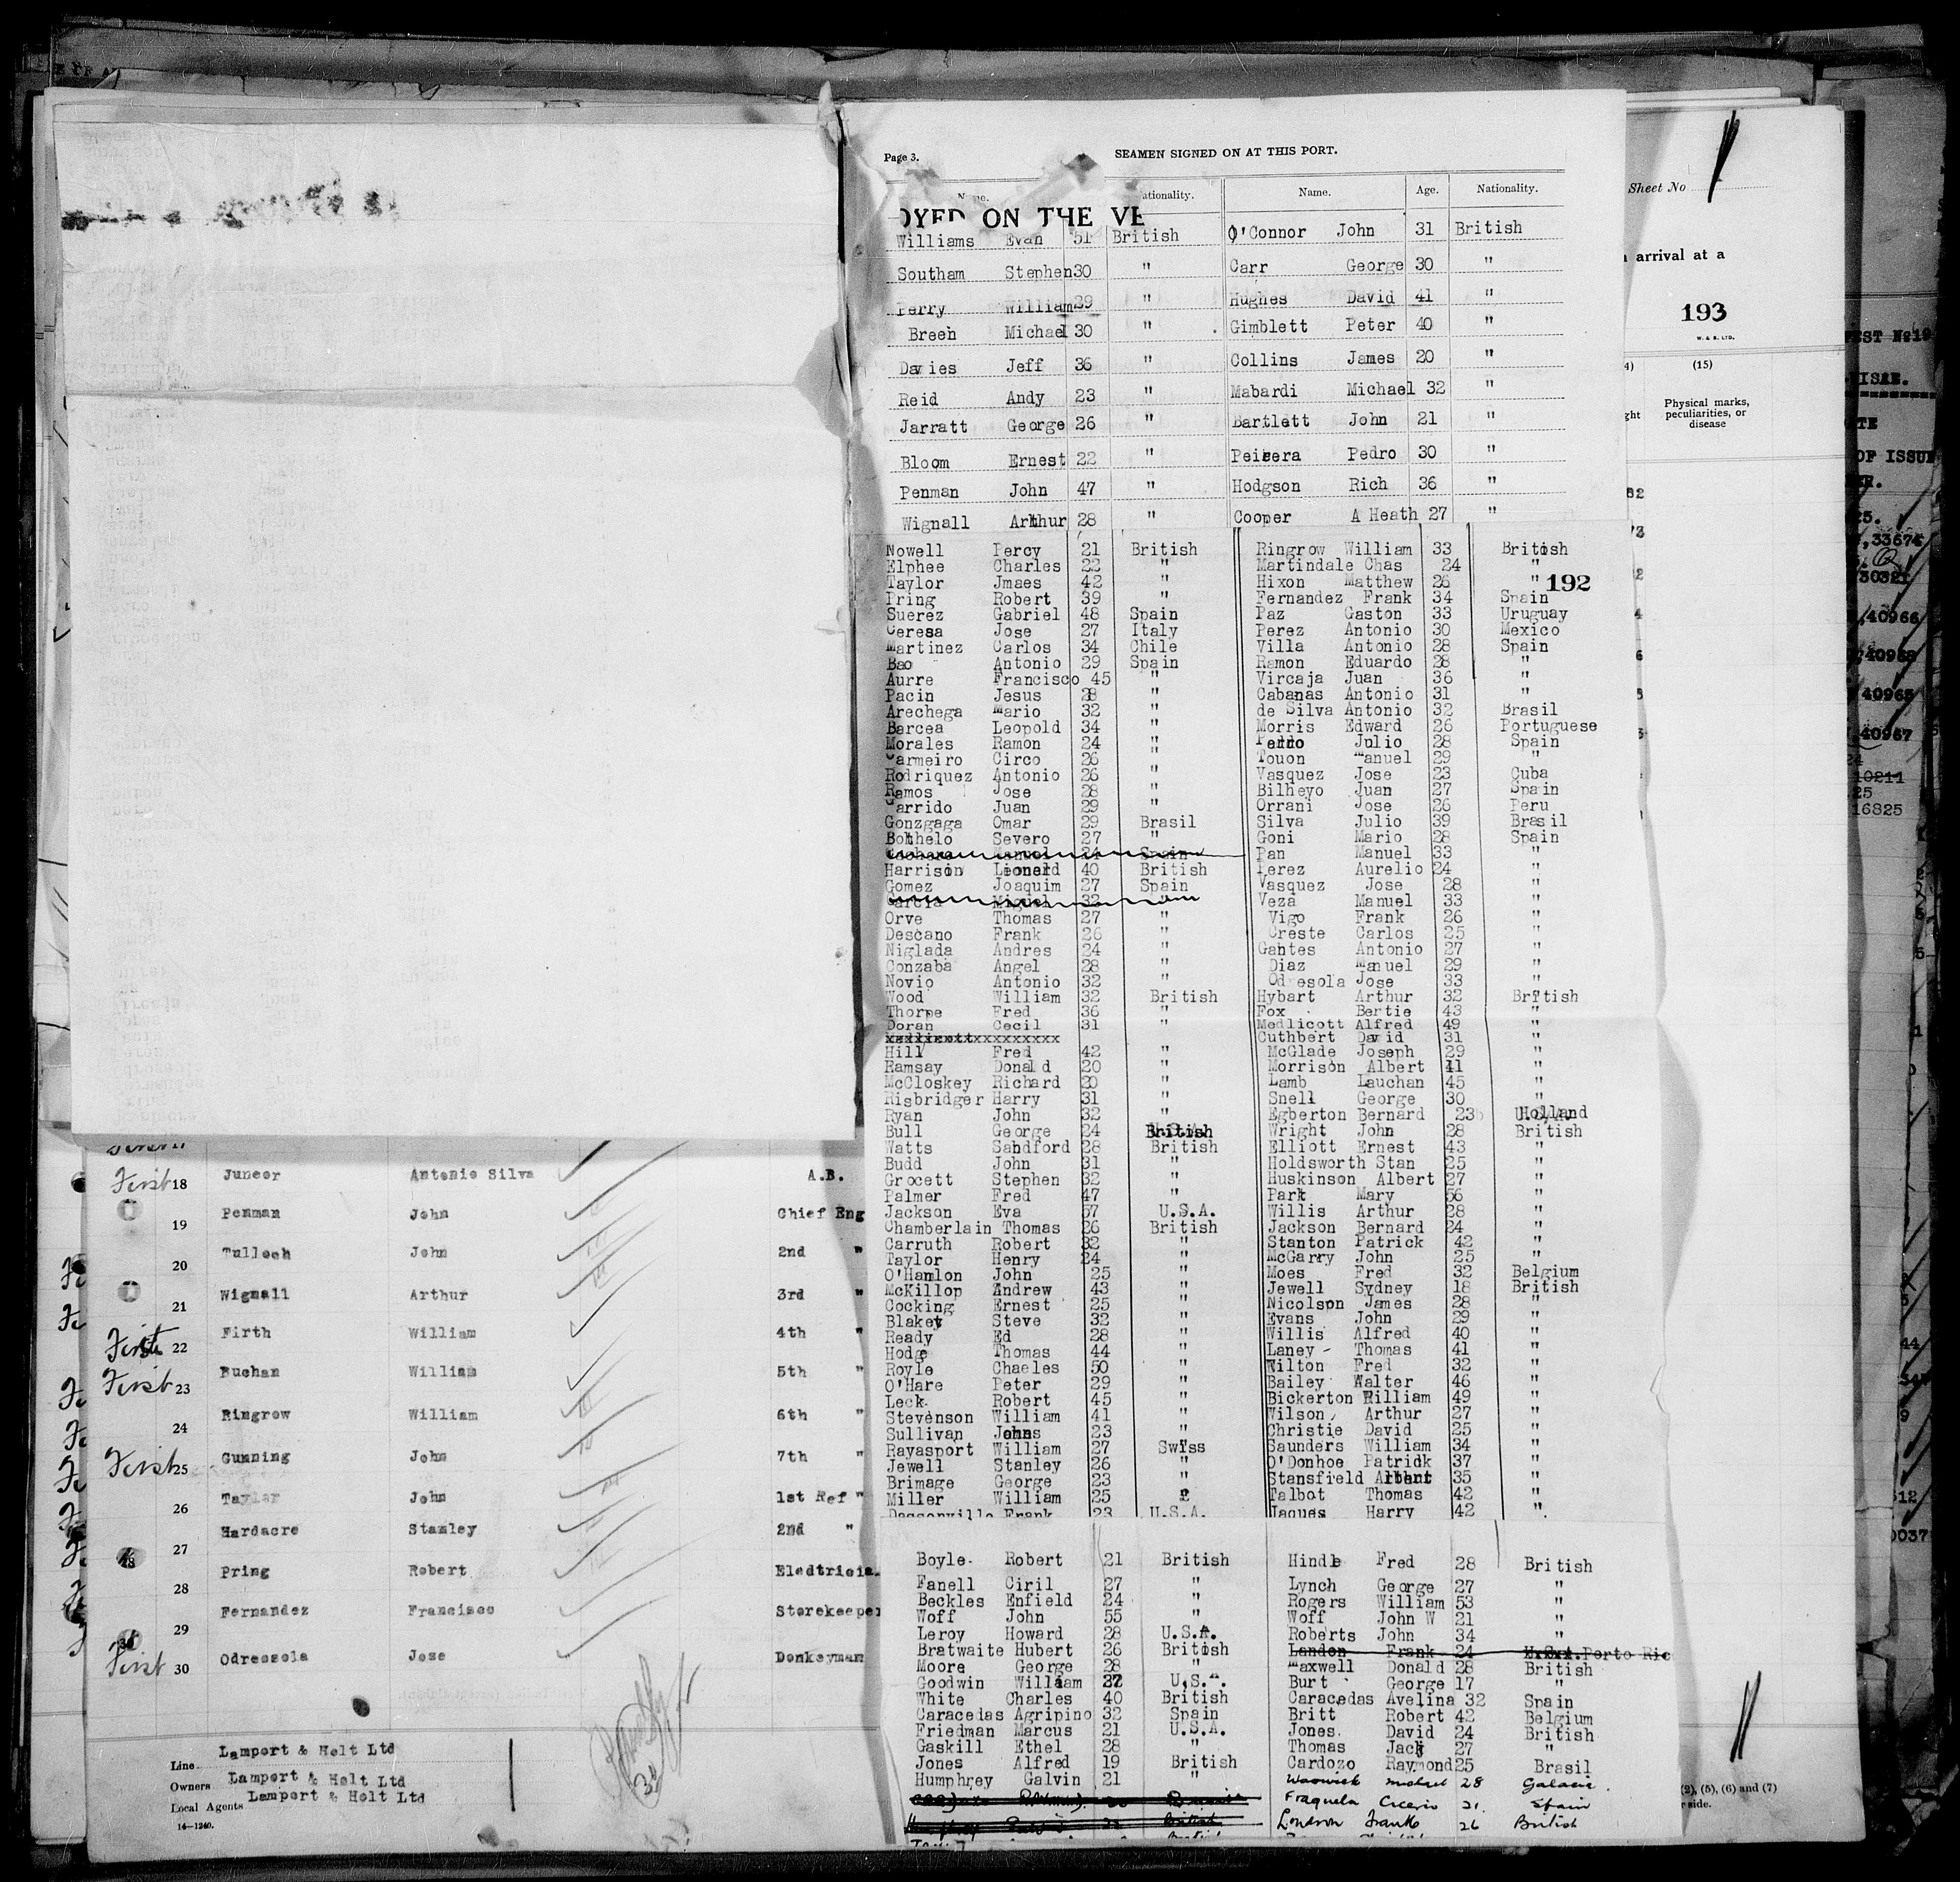 Page 3.
SEAMEN SIGNED ON AT THIS PORT.
ationality. Name. Age. Nationality.
OYED ON THE VE
Williams Evan 51 British O'Connor John 31 British
Southam Stephen 30 " Carr George 30 "
Perry William 29 " Hughes David 41 "
Breen Michael 30 " Gimblett Peter 40 "
Davies Jeff 36 " Collins James 20 "
Reid Andy 23 " Mabardi Michael 32 "
Jarratt George 26 " Bartlett John 21 "
Bloom Ernest 22 " Pedro 30 "
Penman John 47 " Hodgson Rich 36 "
Wignall Arthur 28 " Cooper A Heath 27 "
Nowell Percy 21 British Ringrow William 33 British
Elphee Charles 22 " Martindale Chas 24 "
Taylor Jmaes 42 " Hixon Matthew 26 "
192
Pring Robert 39 " Fernandez Frank 34 Spain
Suerez Gabriel 48 Spain Paz Gaston 33 Uruguay
Ceresa Jose 27 Italy Perez Antonio 30 Mexico
Martinez Carlos 34 Chile Villa Antonio 28 Spain
Bao Antonio 29 Spain Ramon Eduardo 28 "
Aurre Francisco 45 " Vircaja Juan 36 "
Pacin Jesus 28 " Cabanas Antonio 31 "
Arechega Mario 32 " de Silva Antonio 32 Brasil
Barcea Leopold 34 " Morris Edward 26 Portuguese
Morales Ramon 24 " Julio 28 Spain
Carmeiro Circo 26 " Touon Manuel 29 "
Rodriquez Antonio 26 " Vasquez Jose 23 Cuba
Ramos Jose 28 " Bilheyo Juan 27 Spain
Carrido Juan 29 " Orrani Jose 26 Peru
Gonzgaga Omar 29 Brasil Silva Julio 39 Brasil
Bothelo Severo 27 " Goni Mario 28 Spain
Manuel 24 Spain Pan Manuel 33 "
Harrison Lionard 40 British Perez Aurelio 24 "
Gomez Joaquim 27 Spain Vasquez Jose 28 "
Garcia Miguel 32 " Veza Manuel 33 "
Orve Thomas 27 " Vigo Frank 26 "
Descano Frank 26 " Creste Carlos 25 "
Niglada Andres 24 " Gantes Antonio 27 "
Conzaba Angel 28 " Diaz Manuel 29 "
Novio Antonio 32 " Odresola Jose 33 "
Wood William 32 British Hybart Arthur 32 British
Thorpe Fred 36 " Fox Bertie 43 "
Doran Cecil 31 " Medlicott Alfred 49 "
Cuthbert David 31 "
Hill Fred 42 " McGlade Joseph 29 "
Ramsay Donald 20 " Morrison Albert 41 "
McCloskey Richard 20 " Lamb Lauchan 45 "
Risbridger Harry 31 " Snell George 30 "
Ryan John 32 " Egberton Bernard 23 Holland
Bull George 24 British Wright John 28 British
Watts Sandford 28 British Elliott Ernest 43 "
Budd John 31 " Holdsworth Stan 25 "
Grocett Stephen 32 " Huskinson Albert 27 "
Palmer Fred 47 " Park Mary 56 "
Jackson Eva 57 U.S.A. Willis Arthur 28 "
Chamberlain Thomas 26 British Jackson Bernard 24 "
Carruth Robert 32 " Stanton Patrick 42 "
Taylor Henry 24 " McGarry John 25 "
O'Hanlon John 25 " Moes Fred 32 Belgium
McKillop Andrew 43 " Jewell Sydney 18 British
Cocking Ernest 25 " Nicolson James 28 "
Blakey Steve 32 " Evans John 29 "
Ready Ed 28 " Willis Alfred 40 "
Hodge Thomas 44 " Laney Thomas 41 "
Royle Chaeles 50 " Wilton Fred 32 "
O'Hare Peter 29 " Bailey Walter 46 "
Leck Robert 45 " Bickerton William 49 "
Stevenson William 41 " Wilson Arthur 27 "
Sullivan 23 " Christie David 25 "
Rayasport William 27 Swiss Saunders William 34 "
Jewell Stanley 26 " O'Donhoe Patridk 37 "
Brimage George 23 " Stansfield 35 "
Miller William 25 Talbot Thomas 42 "
Dassonville Frank 23 U.S.A. Jaques Harry 42 "
Boyle Robert 21 British Hindle Fred 28 British
Fanell Ciril 27 " Lynch George 27 "
Beckles Enfield 24 " Rogers William 53 "
Woff John 55 " Woff John W 21 "
Leroy Howard 28 U.S.A. Roberts John 34 "
Bratwaite Hubert 26 British Landon Frank 24 Porto Ric
Moore George 28 " Maxwell Donald 28 British
Goodwin William 37 U.S.A. Burt George 17 "
White Charles 40 British Caracedas Avelina 32 Spain
Caracedas Agripino 32 Spain Britt Robert 42 Belgium
Friedman Marcus 21 U.S.A. Jones. David 24 British
Gaskill Ethel 28 " Thomas Jack 27 "
Jones Alfred 19 British Cardozo Raymond 25 Brasil
Humphrey Galvin 21 " Warwick Michael 28 Galacia.
Fraquela Cicerio 21. Spain
British London Frank 26 British
Sheet No
arrival at a
193
W. & S. LTD.
(15)
Physical marks,
peculiarities, or
disease
First 18 Juneor Antonio Silva A.B.
19 Penman John Chief Eng
20 Tulloch John 2nd "
21 Wignall Arthur 3rd "
First 22 Firth William 4th "
First 23 Buchan William 5th "
24 Ringrow William 6th "
First 25 Gunning John 7th "
26 Taylor John 1st Ref "
27 Hardacre Stanley 2nd "
28 Pring Robert Eledtricia
29 Fernandez Francisco Storekeeper
First 30 Odressola Jose Donkeyman
Line Lamport & Holt Ltd
Owners Lamport & Holt Ltd
Local Agents Lamport & Holt Ltd
14—1240.
(2), (5), (6) and (7)
side.
OF ISSUE
33674
30321
40966
40968
40965
40967
10211
16825